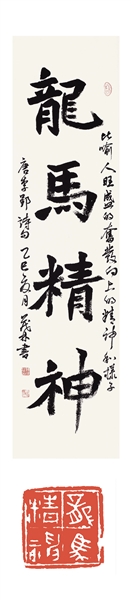 龍馬精神
比喻人旺盛的奮發向上的精神和樣子
唐李郢詩句 乙巳夏月 書
龍馬
精神